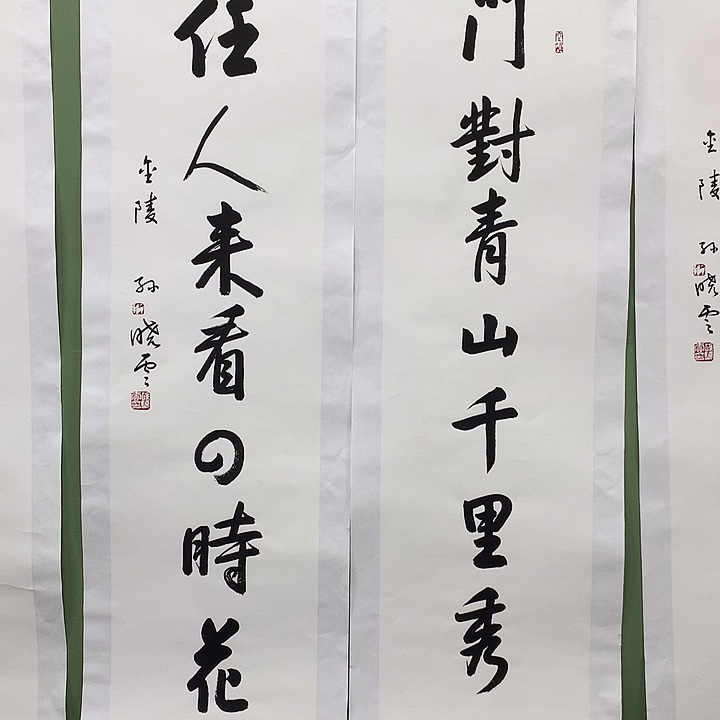 金陵 孙晓雲
門對青山千里秀
任人来看四時花
金陵 孙晓雲